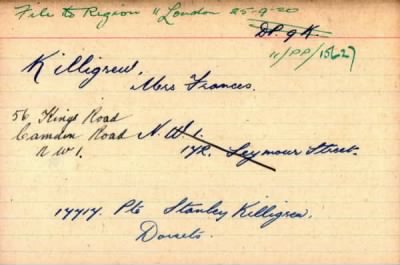 File to Region 11 London 25-9-20
D.P. 9 K.
11/PP/15627
Killigrew,
Mrs Frances.
56 Kings Road
Camden Road N.W.1.
N W 1. 172. Seymour Street.
17717. Pte Stanley Killigrew.
Dorsets.